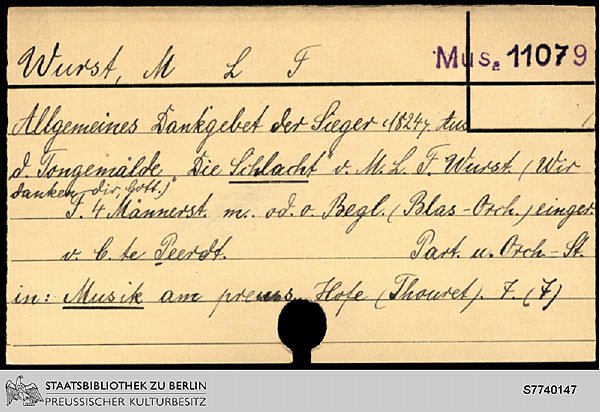 Wurst, M L F
Mus. 11079
Allgemeines Dankgebet der Sieger (1824). Aus
d. Tongemälde "Die Schlacht" v. M. L. F. Wurst. (Wir
danken dir, Gott.)
F. 4 Männerst. m. od. o. Begl. (Blas-Orch.) einger.
v. C. te Peerdt. Part. u. Orch-St.
in: Musik am preuss. Hofe (Thouret). 7. (7)
STAATSBIBLIOTHEK ZU BERLIN
PREUSSISCHER KULTURBESITZ
S7740147